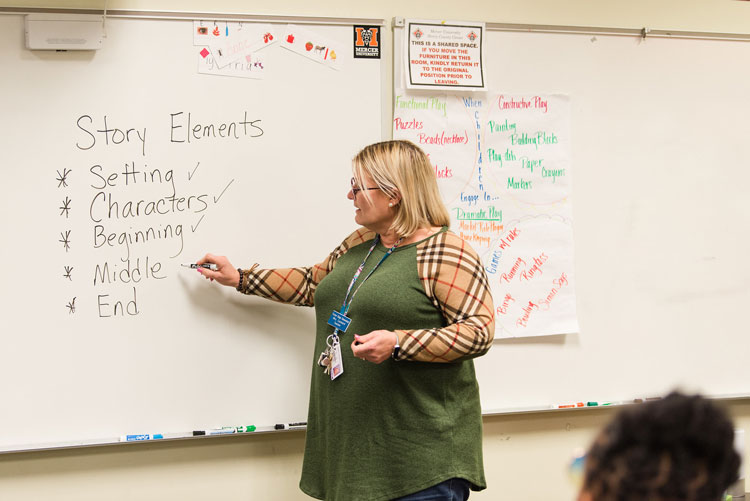 Story Elements
* Setting ✓
* Characters ✓
* Beginning ✓
* Middle
* End
M
MERCER
UNIVERSITY
THIS IS A SHARED SPACE.
IF YOU MOVE THE
FURNITURE IN THIS
ROOM, KINDLY RETURN IT
TO THE ORIGINAL
POSITION PRIOR TO
LEAVING.
Functional Play
Puzzles
Beads (necklace)
When
Children
Engage In...
Constructive Play
Painting
Building Blocks
Play doh
Paper
Crayons
Markers
Dramatic Play
Games w/ rules
Running
Bingo
Bowling
Simon Says